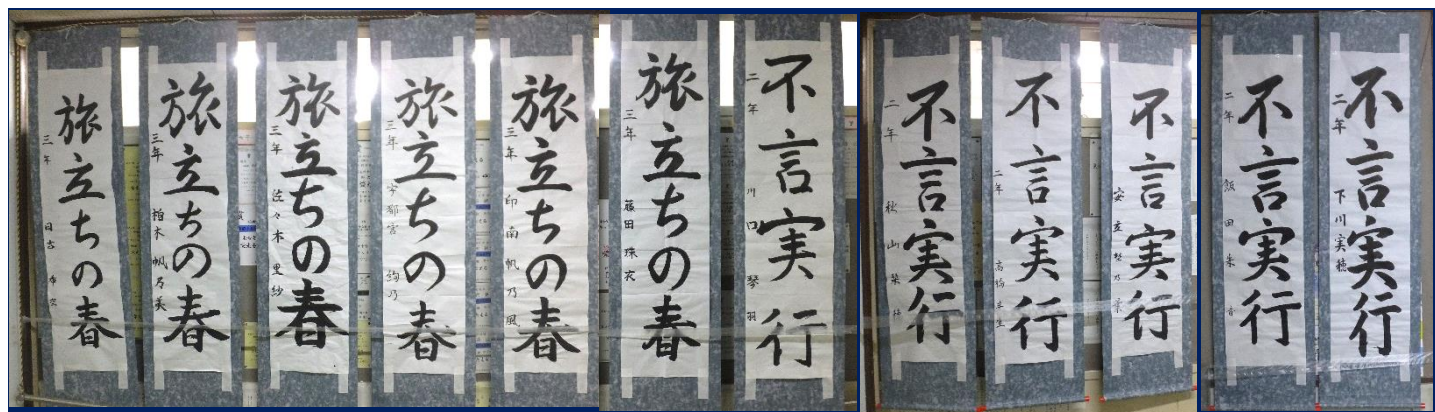 旅立ちの春
三年
旅立ちの春
三年 柏木帆乃美
旅立ちの春
三年 佐々木里紗
旅立ちの春
三年 宇都宮絢乃
旅立ちの春
三年 印南帆乃風
旅立ちの春
三年 藤田珠衣
不言実行
二年 川口琴羽
不言実行
二年 秋山
不言実行
二年 高橋
不言実行
二年 安立
不言実行
二年 飯田朱音
不言実行
二年 下川実穂